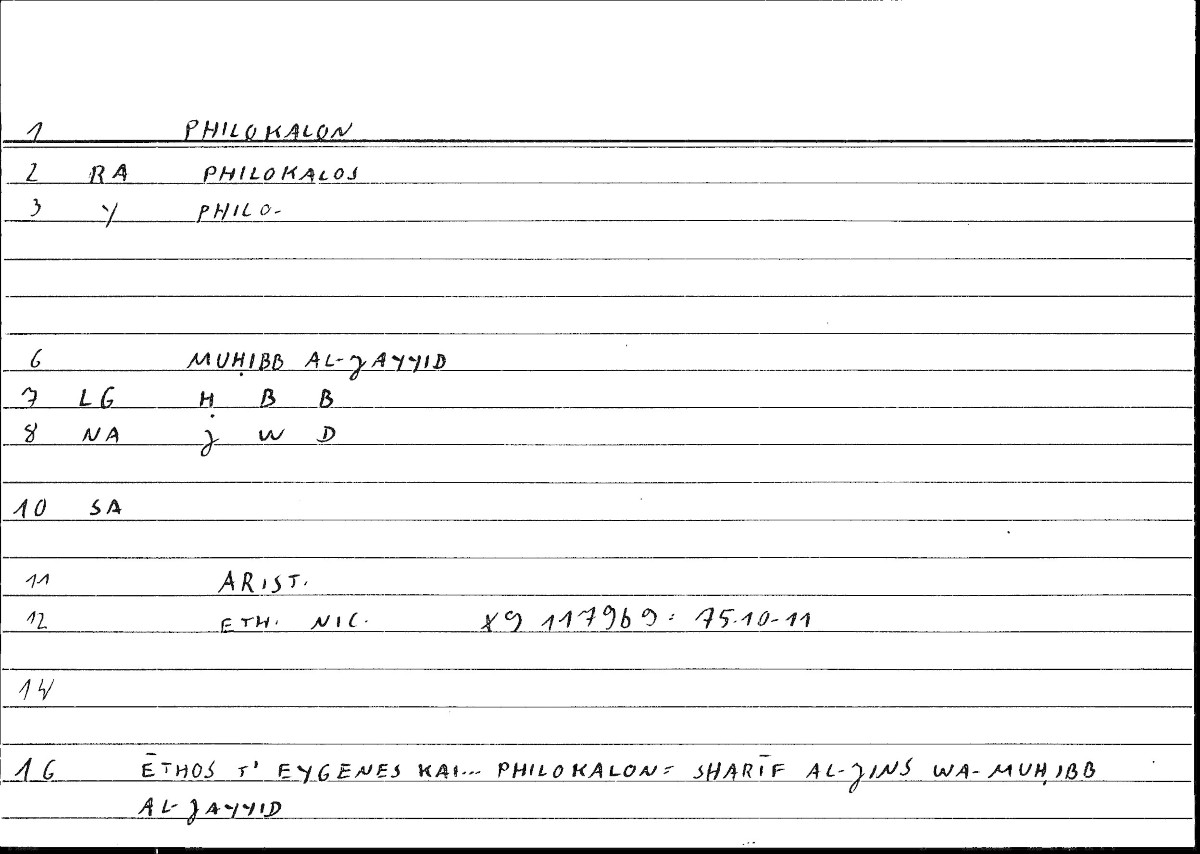 1 PHILOKALON
2 RA PHILOKALOS
3 Y PHILO-
6 MUḤIBB AL-JAYYID
7 LG Ḥ B B
8 NA J W D
10 SA
11 ARIST.
12 ETH. NIC. X9 1179b9: 75.10-11
14
16 ĒTHOS T' EYGENES KAI... PHILOKALON= SHARĪF AL-JINS WA-MUḤIBB
AL-JAYYID